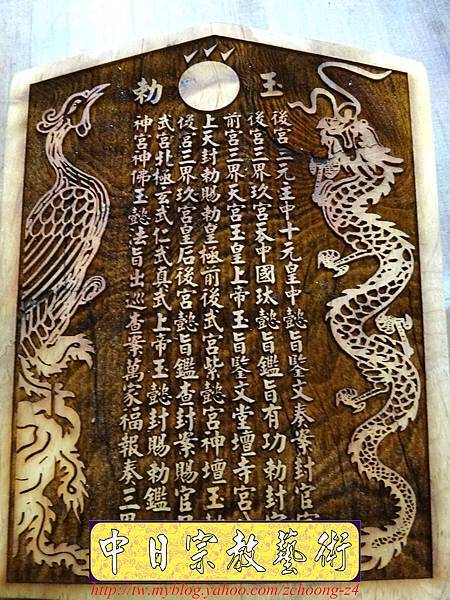 玉勅
後宮三元主中十元皇中懿旨鑒文奏案封官
後宮三界玖宮叅中國玞懿旨鑑旨有功勅封
前宮三界天宮玉皇上帝玉旨鑒文堂壇寺宮
上天封勅賜勅皇極前後武宮紫懿宮神壇玉
後宮三界玖宮皇后後宮懿旨鑑查封案賜官
武宮北極玄武仁武真武上帝玉懿封賜勅鑑
神宮神佛玉懿法旨出巡查案萬家福報奏三
中日宗教藝術
http://tw.myblog.yahoo.com/zchoong-z4